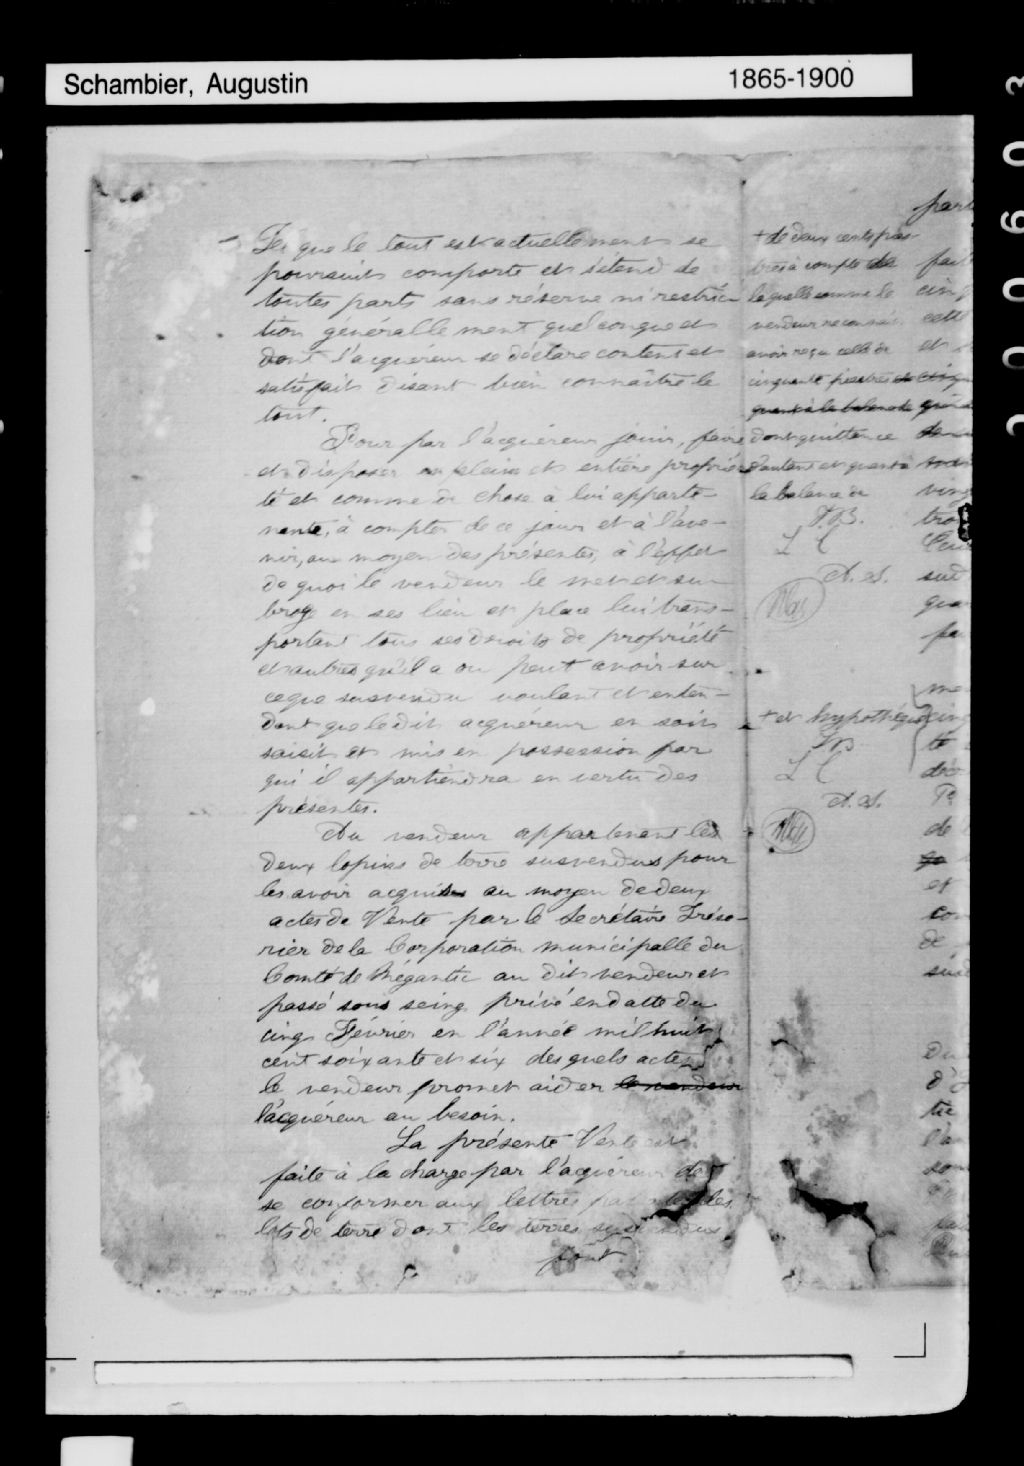 Schambier, Augustin 1865-1900
Tel que le tout est actuellement se
poursuit comporte et s'étend de
toutes parts sans réserve ni restric
tion généralle ment quelconque et
dont l'acquéreur se déclare content et
satisfait disant bien connaître le
tout.
Pour par l'acquéreur jouir, faire
et disposer en pleine et entière proprié
té et comme de chose à lui apparte-
nante, à compter de ce jour et à l'ave-
nir, au moyen des présentes, à l'effet
de quoi le vendeur le met et su-
broge en ses lieu et place lui trans-
portant tous ses droits de propriété
et autres qu'il a ou peut avoir sur
ce que susvendu voulant et enten-
dant que ledit acquéreur en soit
saisit et mis en possession par
qui il appartiendra en vertu des
présentes.
Au vendeur appartenent les
deux lopins de terre susvendus pour
les avoir acquis au moyen de deux
actes de Vente par le Secrétaire Tréso-
rier de la Corporation municipalle du
Comté de Mégantic au dit vendeur et
passé sous seing privé en datte du
cinq Février en l'année mil huit
cent soixante et six des quels actes
le vendeur promet aider le vendeur
l'acquéreur au besoin.
La présente Vente est
faite à la charge par l'acquéreur de
se conformer aux lettres patentes des
lots de terre dont les terres susvendus
font
+ de deux cents pias-
tres à compte de
laquelle somme le
vendeur reconnait
avoir reçu celle de
cinquante piastres et
quant à la balance de
dont quittance
d'autant et quant à
la balance de
L C
A. S.
+ et hypothéque
L C
A. S.
part
cinq
cette
et
ving
sud
de
et
de
200603